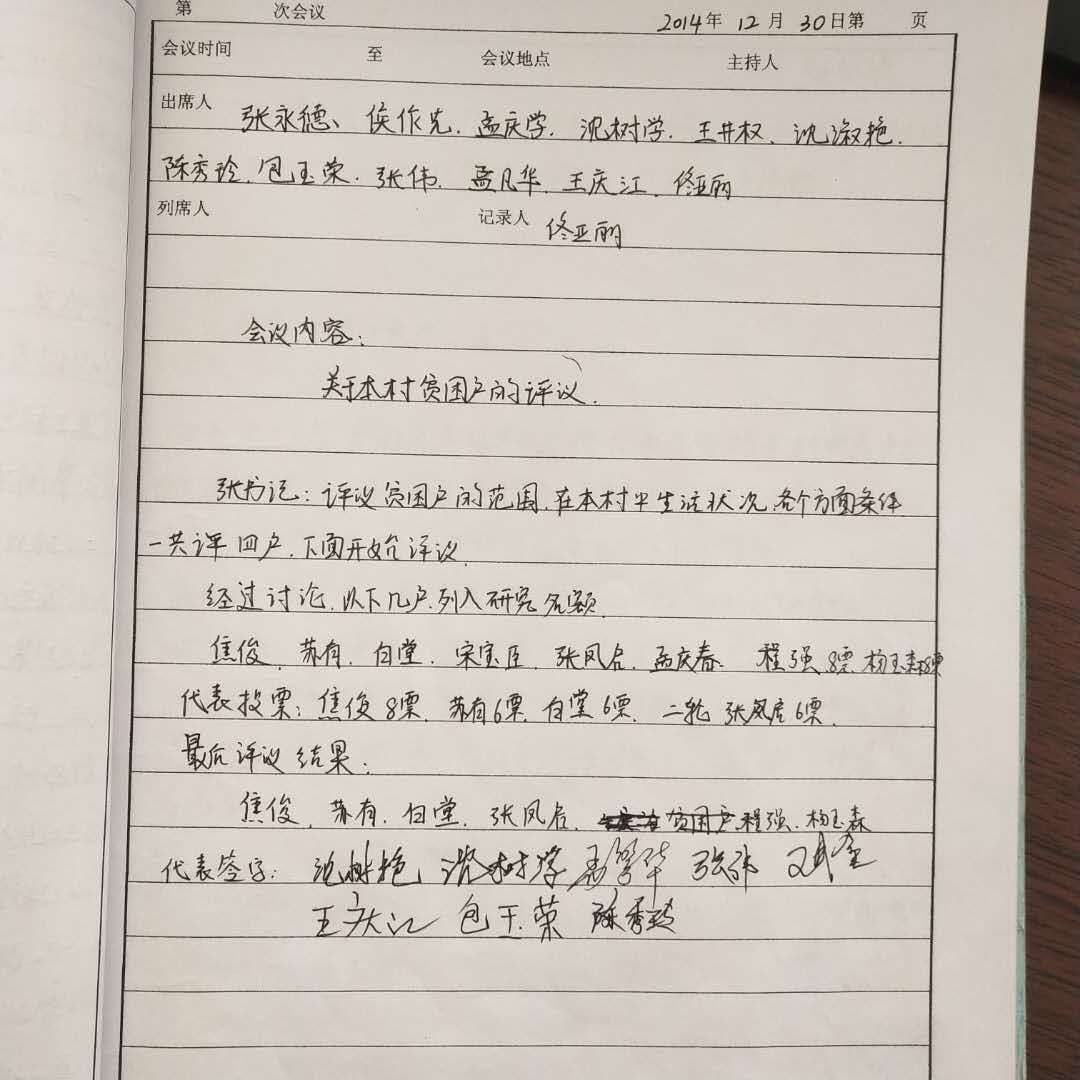 第 次会议 2014年 12月 30日第 页
会议时间 至 会议地点 主持人
出席人 张永德、侯作先.孟庆学.沈树学.王井权.沈淑艳.
陈秀玲.包玉荣.张伟.孟凡华.王庆江.佟亚丽
列席人 记录人 佟亚丽
会议内容:
关于本村贫困户的评议.
张书记:评议贫困户的范围.在本村中生活状况.各个方面条件
一共评四户.下面开始评议.
经过讨论.以下几户.列入研究名额.
焦俊.苏有.白堂.宋宝臣.张凤启.孟庆春. 程强8票.杨玉森8票
代表投票:焦俊8票.苏有6票.白堂6票. 二轮 张凤启6票.
最后评议结果:
焦俊.苏有.白堂.张凤启. 贫困户程强.杨玉森
代表签字: 沈树学 孟凡华 张伟
王庆江 包玉荣 陈秀玲